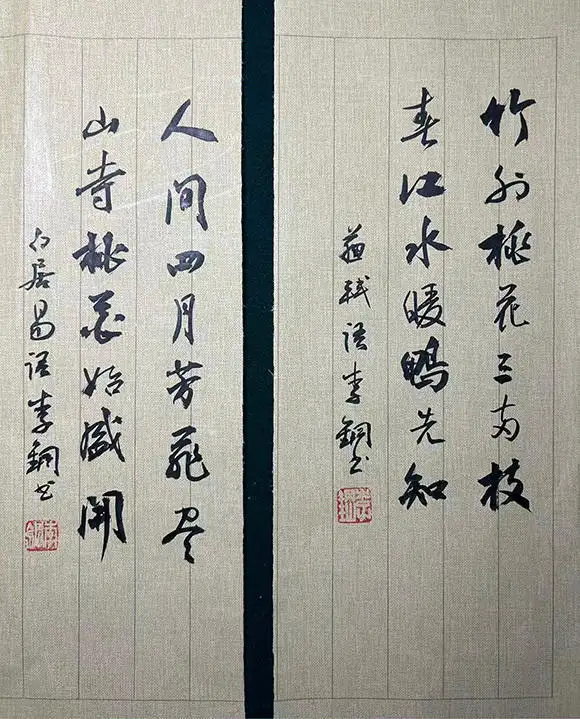 竹外桃花三两枝
春江水暖鸭先知
苏轼语李铜书
人间四月芳菲尽
山寺桃花始盛开
白居易语李铜书